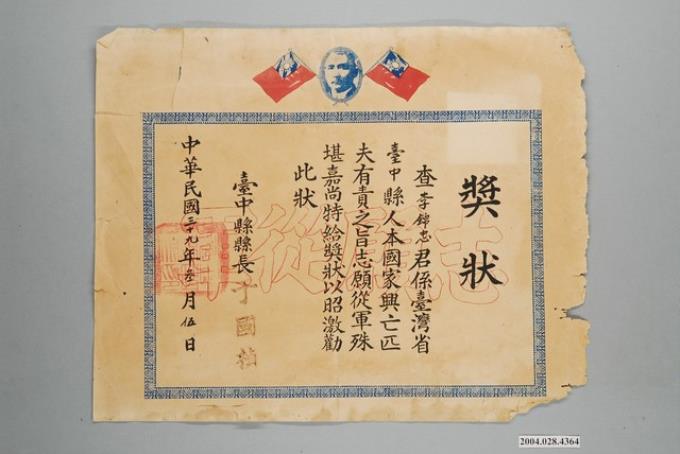 獎狀
查李錦志君係臺灣省
臺中縣人本國家興亡匹
夫有責之旨志願從軍殊
堪嘉尚特給獎狀以昭激勸
此狀
臺中縣縣長于國楨
中華民國三十九年叁月伍日
志願從軍
2004.028.4364